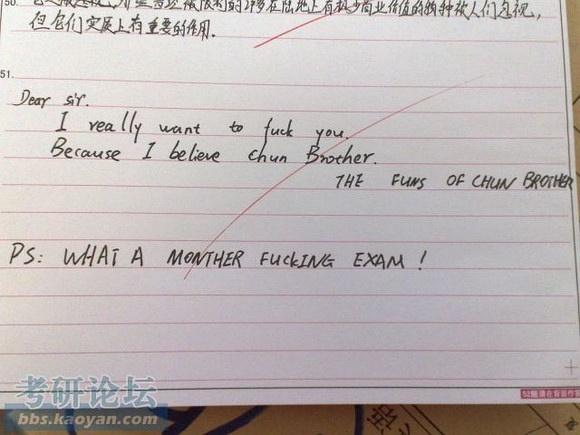 50.
的许多在陆地上有极少商业价值的物种被人们忽视,
但它们实际上有重要的作用.
51.
Dear sir.
I really want to fuck you.
Because I believe chun Brother.
THE FUNS OF CHUN BROTHER
PS: WHAT A MONTHER FUCKING EXAM !
52题请在背面作
考研论坛
bbs.kaoyan.com